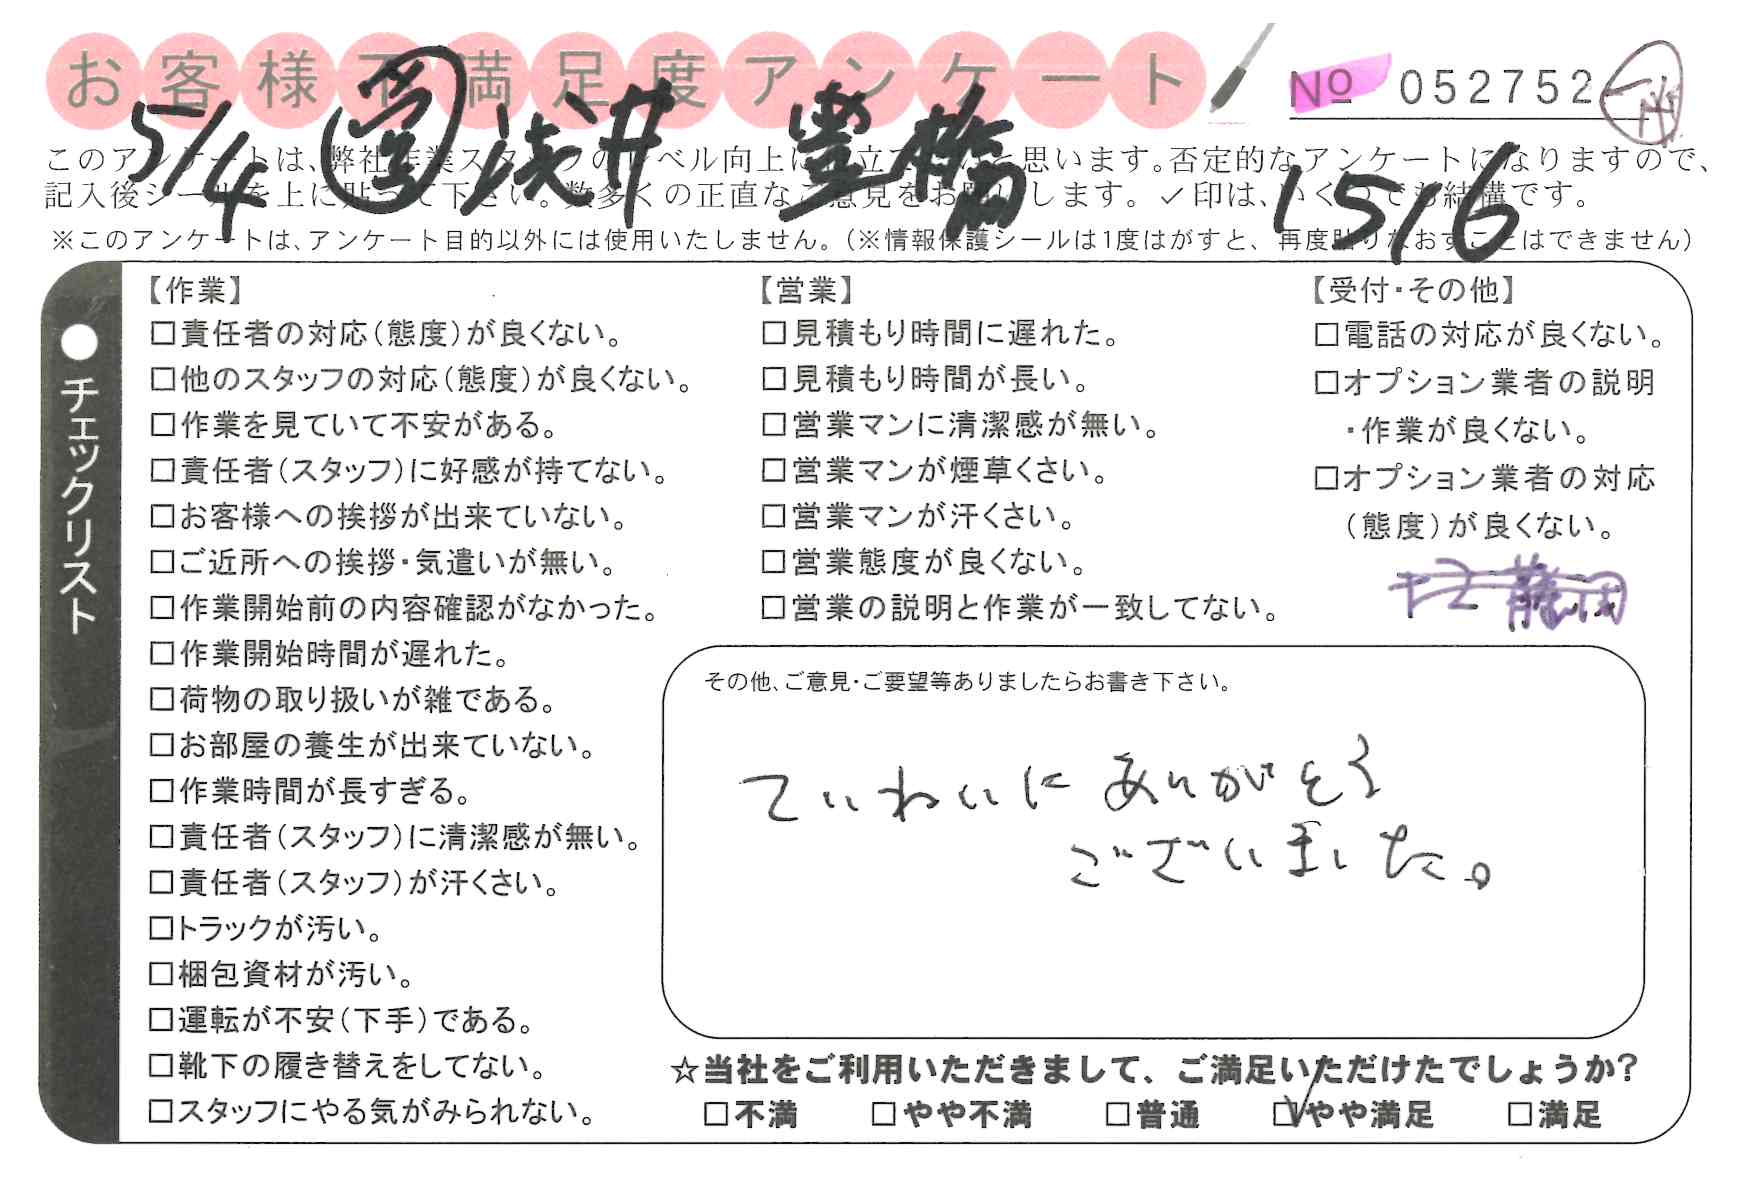 お客様不満足度アンケート
№ 052752
5/4 営 浅井 豊橋 1516
このアンケートは、弊社作業スタッフのレベル向上に役立てたいと思います。否定的なアンケートになりますので、
記入後シールを上に貼って下さい。数多くの正直なご意見をお願いします。✓印は、いくつでも結構です。
※このアンケートは、アンケート目的以外には使用いたしません。（※情報保護シールは1度はがすと、再度貼りなおすことはできません）
●チェックリスト
【作業】
□責任者の対応（態度）が良くない。
□他のスタッフの対応（態度）が良くない。
□作業を見ていて不安がある。
□責任者（スタッフ）に好感が持てない。
□お客様への挨拶が出来ていない。
□ご近所への挨拶・気遣いが無い。
□作業開始前の内容確認がなかった。
□作業開始時間が遅れた。
□荷物の取り扱いが雑である。
□お部屋の養生が出来ていない。
□作業時間が長すぎる。
□責任者（スタッフ）に清潔感が無い。
□責任者（スタッフ）が汗くさい。
□トラックが汚い。
□梱包資材が汚い。
□運転が不安（下手）である。
□靴下の履き替えをしてない。
□スタッフにやる気がみられない。
【営業】
□見積もり時間に遅れた。
□見積もり時間が長い。
□営業マンに清潔感が無い。
□営業マンが煙草くさい。
□営業マンが汗くさい。
□営業態度が良くない。
□営業の説明と作業が一致してない。
【受付・その他】
□電話の対応が良くない。
□オプション業者の説明
・作業が良くない。
□オプション業者の対応
（態度）が良くない。
その他、ご意見・ご要望等ありましたらお書き下さい。
ていねいにありがとう
ございました。
☆当社をご利用いただきまして、ご満足いただけたでしょうか?
□不満 □やや不満 □普通 ☑やや満足 □満足